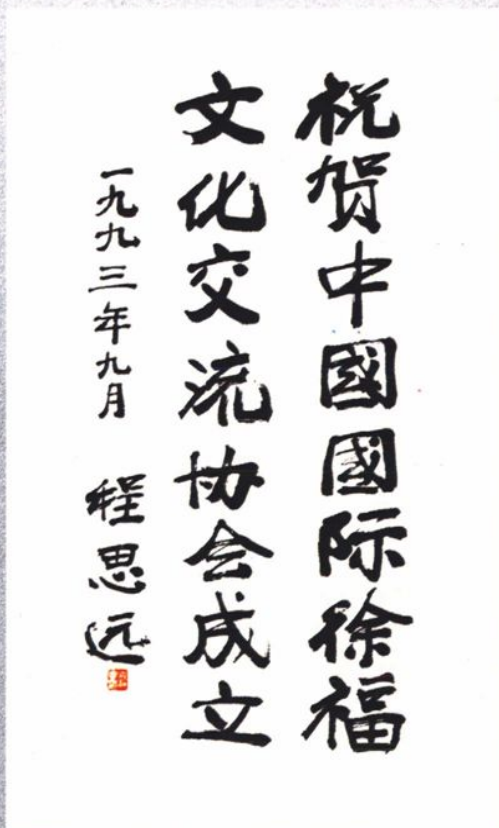 祝贺中國國际徐福
文化交流协会成立
一九九三年九月 程思远